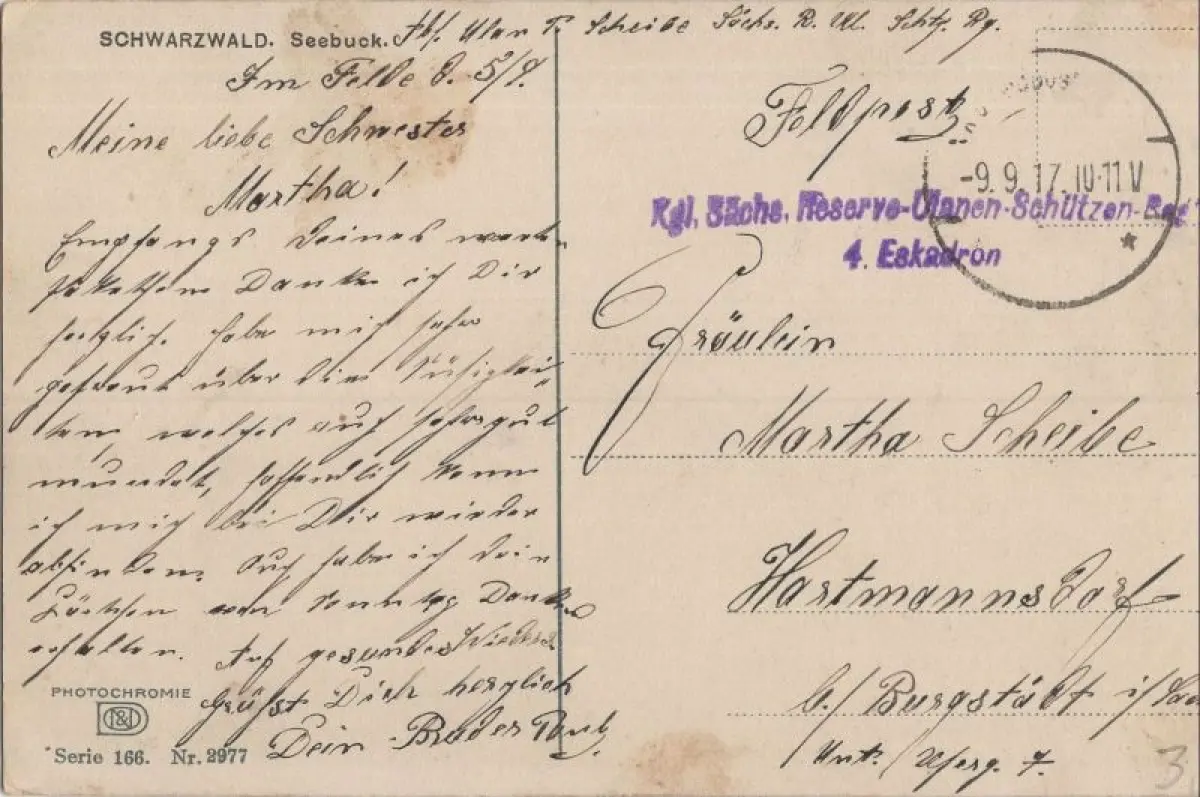 SCHWARZWALD. Seebuck.
Abs. Ulan P. Scheibe Sächs. R. Ul. Schtz. Rg.
Im Felde d. 5/9.
Meine liebe Schwester
Martha!
Empfangs Deines werten
Paketchen Danke ich Dir
herzlich. Habe mich sehr
gefreut über die Süßigkei-
ten, welches auch sehr gut
mundet, hoffendlich kann
ich mich bei Dir wieder
abfinden. Auch habe ich dein
von Sonntag Dankend
erhalten. Auf gesundes Wieders.
Grüßt Dich herzlich
Dein Bruder Paul.
PHOTOCHROMIE
Serie 166. Nr. 2977
Feldpost
-9.9.17. 10-11 V
Kgl. Sächs. Reserve-Ulanen-Schützen-Reg
4. Eskadron
Fräulein
Martha Scheibe
Hartmannsdorf
b/ Burgstädt i/Sac
Unt. 7.
3